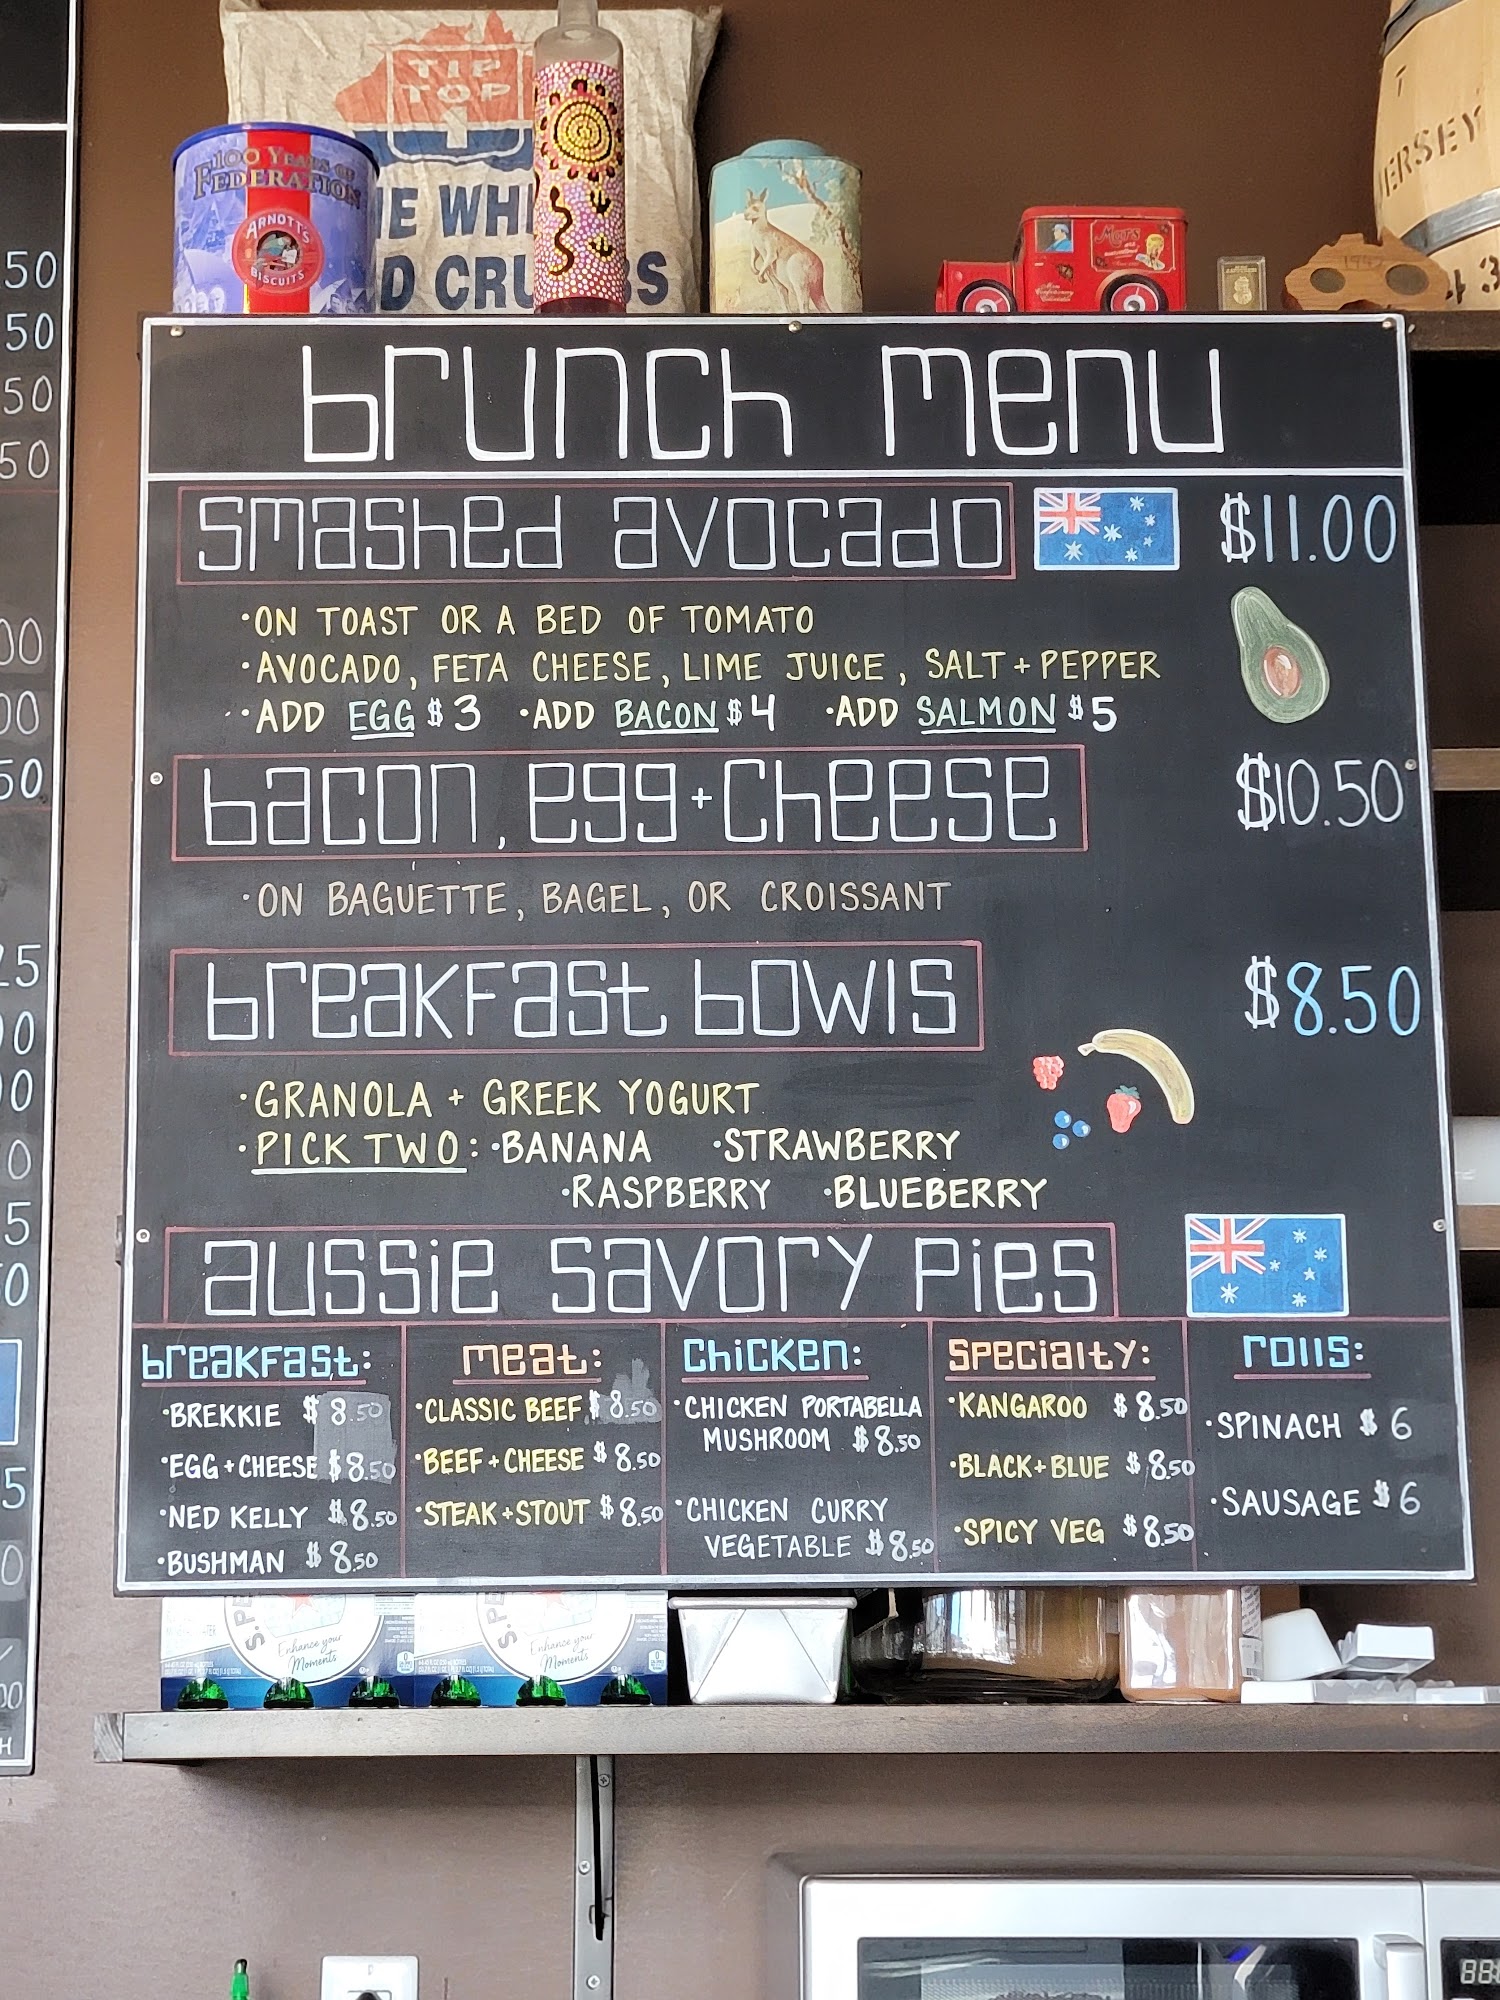 TIP
TOP
100 YEARS OF
FEDERATION
ARNOTT'S
BISCUITS
JERSEY
1947
brunch menu
smashed avocado $11.00
·ON TOAST OR A BED OF TOMATO
·AVOCADO, FETA CHEESE, LIME JUICE, SALT + PEPPER
·ADD EGG $3 ·ADD BACON $4 ·ADD SALMON $5
bacon, egg + cheese $10.50
·ON BAGUETTE, BAGEL, OR CROISSANT
breakfast bowls $8.50
·GRANOLA + GREEK YOGURT
·PICK TWO: ·BANANA ·STRAWBERRY
·RASPBERRY ·BLUEBERRY
aussie savory pies
breakfast:
·BREKKIE $8.50
·EGG + CHEESE $8.50
·NED KELLY $8.50
·BUSHMAN $8.50
meat:
·CLASSIC BEEF $8.50
·BEEF + CHEESE $8.50
·STEAK + STOUT $8.50
chicken:
·CHICKEN PORTABELLA
MUSHROOM $8.50
·CHICKEN CURRY
VEGETABLE $8.50
specialty:
·KANGAROO $8.50
·BLACK + BLUE $8.50
·SPICY VEG $8.50
rolls:
·SPINACH $6
·SAUSAGE $6
Enhance your
Moments
Enhance your
Moments